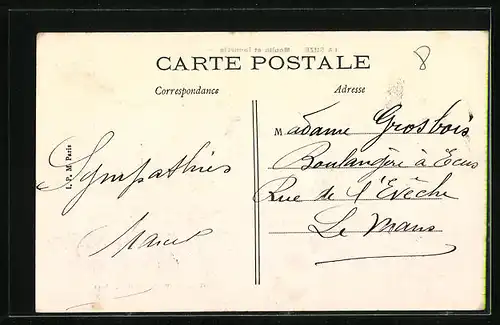 CARTE POSTALE
8
Correspondance
Adresse
Madame Grosbois
Boulangère à Ecus
Rue de l'Evêche
Le Mans
Sympathies
Marcel
I. P. M. Paris